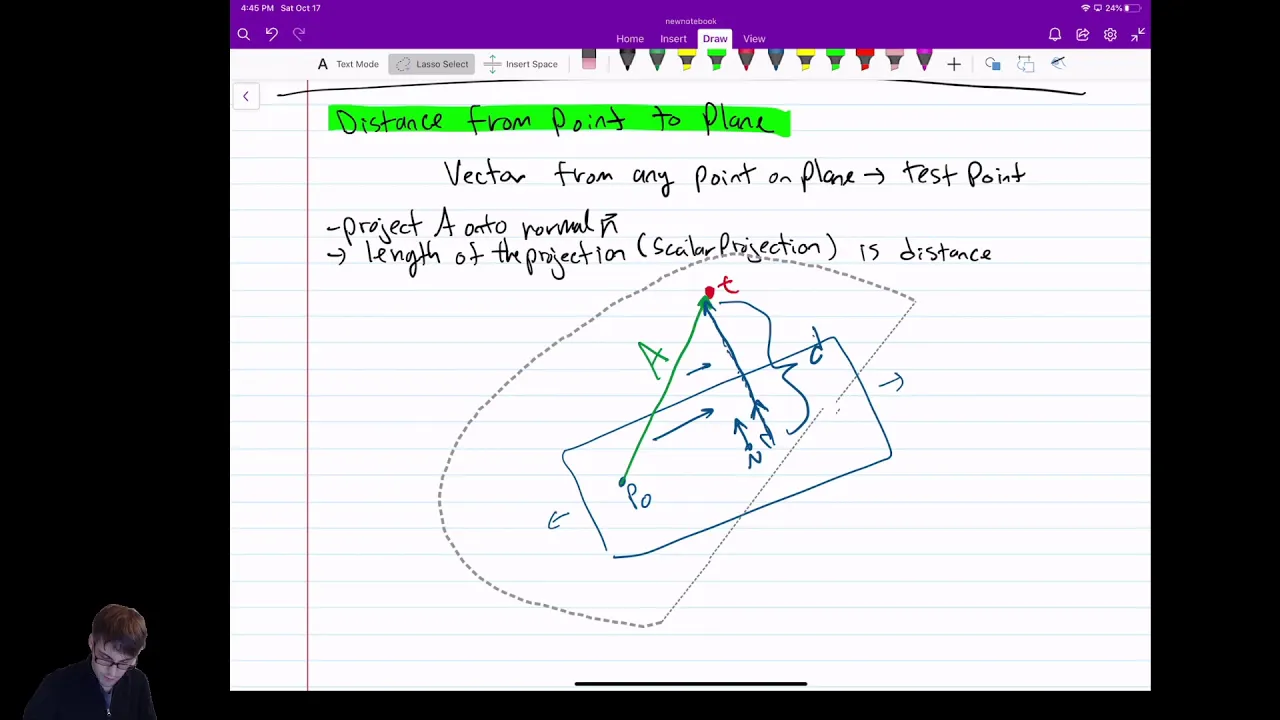 4:45 PM Sat Oct 17
24%
newnotebook
Home Insert Draw View
A Text Mode Lasso Select Insert Space
Distance from point to plane
Vector from any point on plane → test point
-project A onto normal n
→ length of the projection (scalar Projection) is distance
t
A
d
N
Po